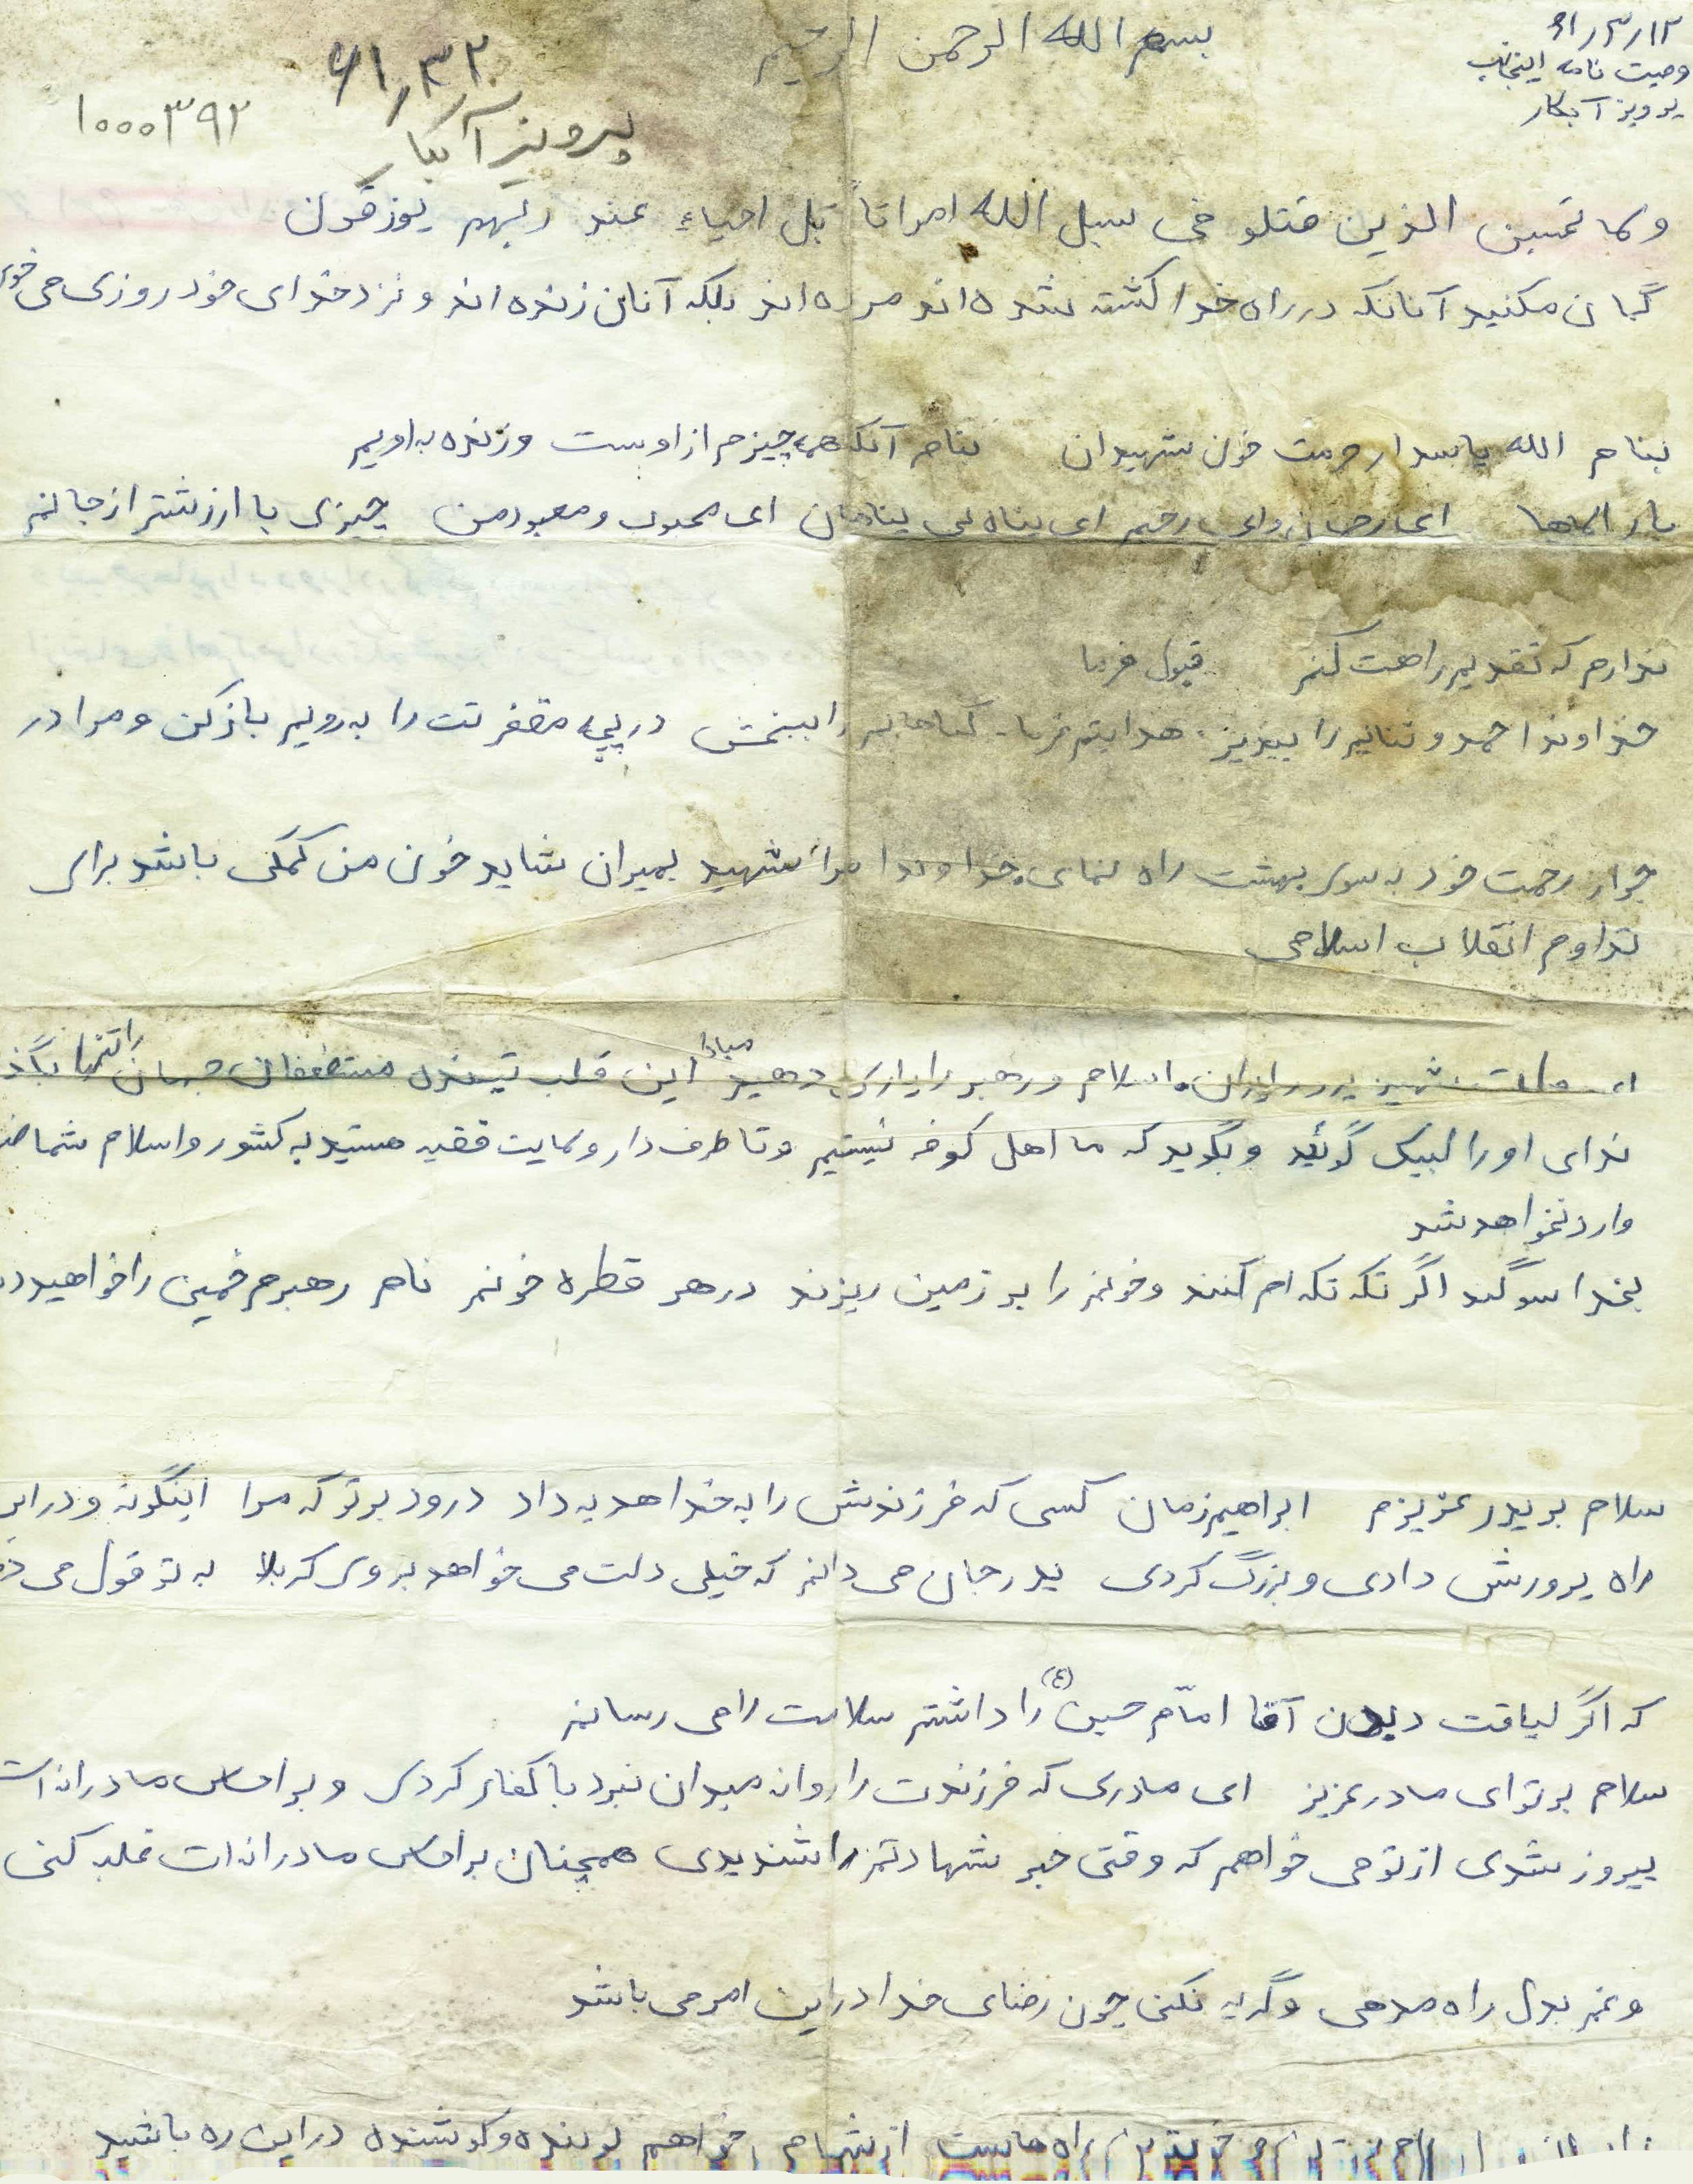 بسم الله الرحمن الرحیم
۶۱/۳/۱۲
وصیت نامه اینجانب
پرویز آبکار
۶۱/۳۲
پرویز آبکار
۱۰۰۰۳۹۲
ولا تحسبن الذین قتلو فی سبل الله امواتاً بل احیاء عند ربهم یوزقون
گمان مکنید آنانکه در راه خدا کشته شده اند مرده اند بلکه آنان زنده اند و نزد خدای خود روزی می
بنام الله پاسدار حرمت خون شهیدان بنام آنکه همه چیزم از اوست و زنده به اویم
بار الهاها ای پناه بی پناهان ای محبوب و معبود من چیزی با ارزشتر از جانم
ندارم که تقدیم راهت کنم قبول فرما
خداوندا حمد و ثنایم را بپذیر. هدایتم فرما. گناهانم را ببخش دریچه مقفرتت را به رویم بازکن و مرا در
جوار رحمت خود به سوی بهشت راه نمای. خداوندا مرا شهید بمیران شاید خون من کمکی باشد برای
تداوم انقلاب اسلامی
ای ملت شهید پرور ایران. اسلام و رهبر را یاری دهید مبادا این قلب تپنده مستظعفان جهان را تنها
ندای او را لبیک گوئید و بگوید که ما اهل کوفه نیستیم و تا طرف دار ولایت فقیه هستید به کشور و اسلام شما
وارد نخواهد شد
بخدا سوگند اگر تکه تکه ام کنند و خونم را بر زمین ریزند در هر قطره خونم نام رهبرم خمینی را خواهید
سلام بر پدر عزیزم ابراهیم زمان کسی که فرزندش را به خدا هدیه داد درود بر تو که مرا اینگونه و در این
راه پرورش دادی و بزرگ کردی پدر جان می دانم که خیلی دلت می خواهد بروی کربلا به تو قول می
که اگر لیاقت دیدن آقا امام حسین (ع) را داشتم سلامت را می رسانم
سلام بر تو ای مادر عزیز ای مادری که فرزندت را روانه میدان نبرد با کفار کردی و بر احساس مادرانه ات
پیروز شدی از تو می خواهم که وقتی خبر شهادتم را شنیدی همچنان بر احساس مادرانه ات غلبه کنی
و غم بدل راه مدهی و گریه نکنی چون رضای خدا در این امر می باشد
راه ماست از شما می خواهم پوینده و کوشنده در این ره باشید